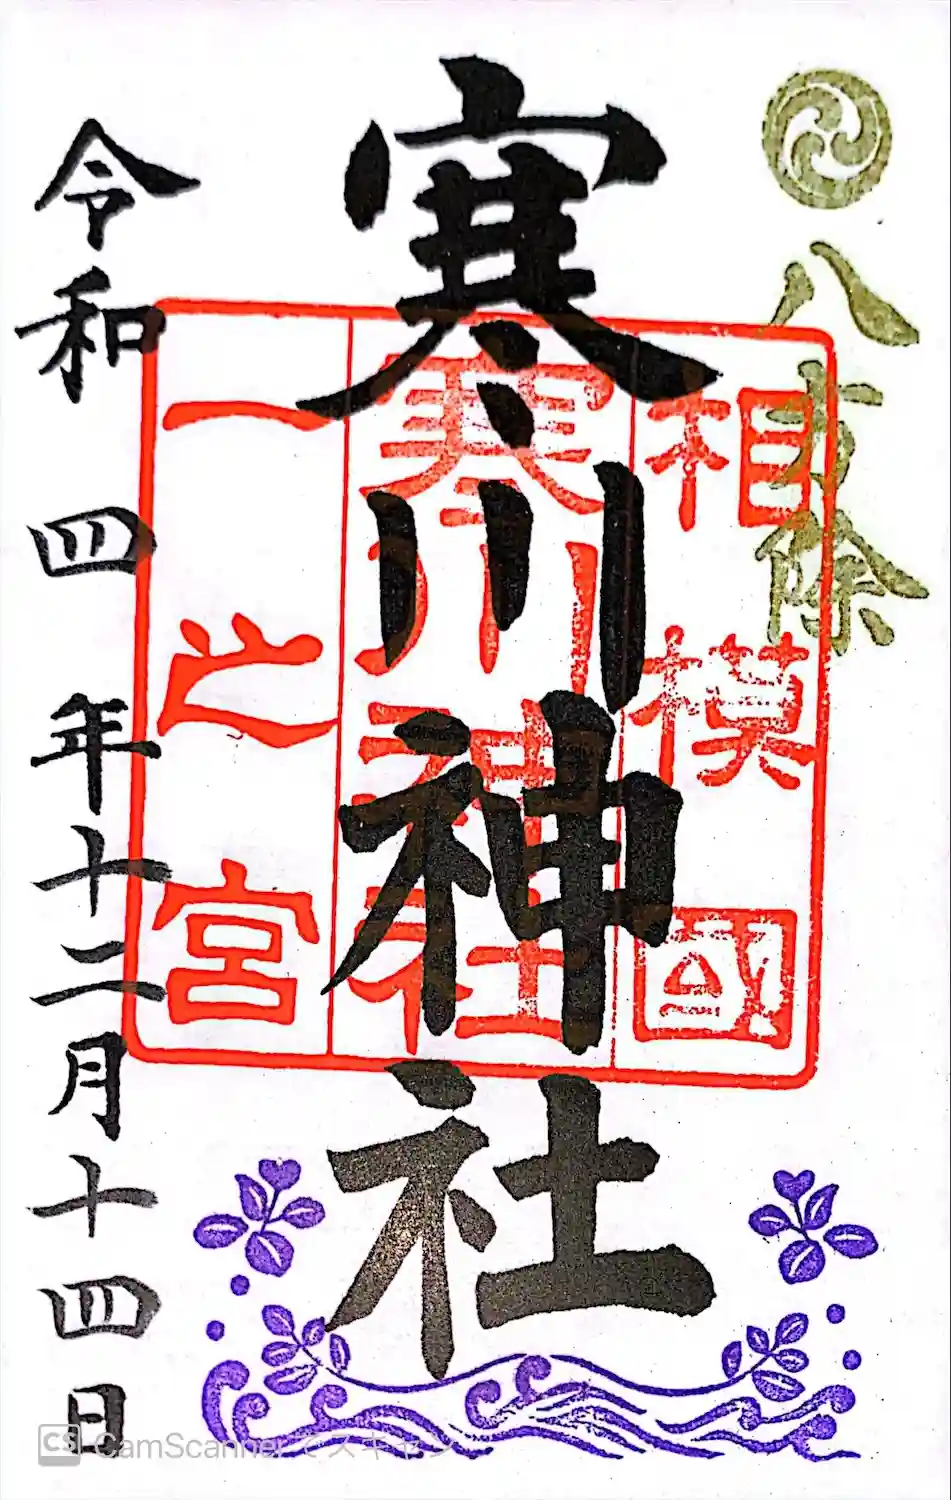 八方除
寒川神社
相模國
寒川神社
一之宮
令和四年十二月十四日
CS CamScannerでスキャン